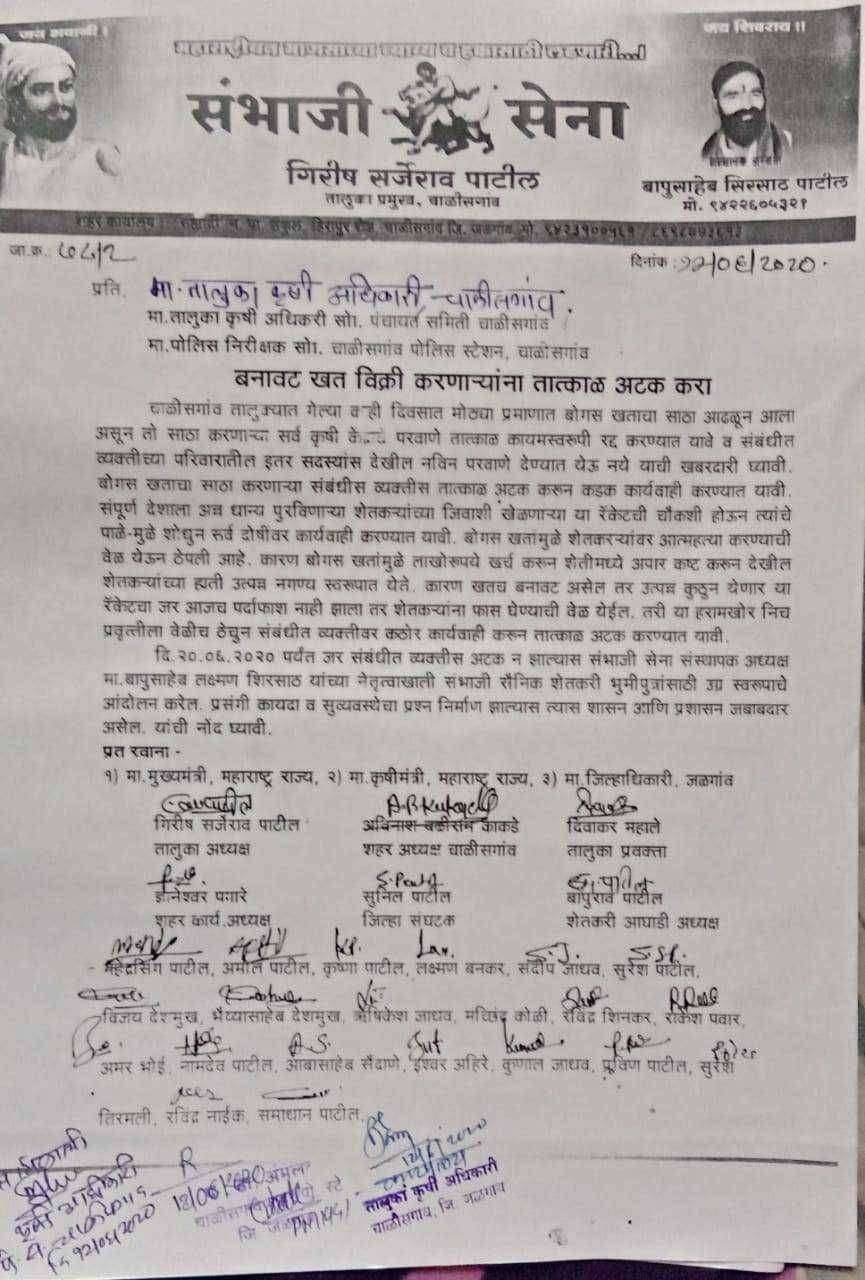 जय भवानी !
जय शिवराय !!
संभाजी सेना
गिरीष सर्जेराव पाटील
तालुका प्रमुख, चाळीसगाव
बापुसाहेब सिरसाठ पाटील
मो. ९४२२६०५३२१
शहर कार्यालय :
जा.क्र.
दिनांक :१२/०६/२020.
प्रति,
मा.तालुका कृषी अधिकारी-चाळीसगांव.
मा.तालुका कृषी अधिकरी सो।. पंचायत समिती चाळीसगांव
मा.पोलिस निरीक्षक सो।. चाळीसगांव पोलिस स्टेशन, चाळीसगांव
बनावट खत विक्री करणाऱ्यांना तात्काळ अटक करा
चाळीसगांव तालुक्यात गेल्या काही दिवसात मोठ्या प्रमाणात बोगस खताचा साठा आढळून आला
असून तो साठा करणाऱ्या सर्व कृषी परवाणे तात्काळ कायमस्वरुपी रद्द करण्यात यावे व संबंधीत
व्यक्तीच्या परिवारातील इतर सदस्यांस देखील नविन परवाणे देण्यात येऊ नये याची खबरदारी घ्यावी.
बोगस खताचा साठा करणाऱ्या संबंधीस व्यक्तीस तात्काळ अटक करून कडक कार्यवाही करण्यात यावी.
संपूर्ण देशाला अन्न धान्य पुरविणाऱ्या शेतकऱ्यांच्या जिवाशी खेळणाऱ्या या रॅकेटची चौकशी होऊन त्यांचे
पाळे-मुळे शोधुन सर्व दोषींवर कार्यवाही करण्यात यावी. बोगस खतांमुळे शेतकरऱ्यांवर आत्महत्या करण्याची
वेळ येऊन ठेपली आहे. कारण बोगस खतांमुळे लाखोरुपये खर्च करून शेतीमध्ये अपार कष्ट करून देखील
शेतकऱ्यांच्या हाती उत्पन्न नगण्य स्वरूपात येते. कारण खतच बनावट असेल तर उत्पन्न कुठून येणार या
रॅकेटचा जर आजच पर्दाफाश नाही झाला तर शेतकऱ्यांना फास घेण्याची वेळ येईल. तरी या हरामखोर निच
प्रवृत्तीला वेळीच ठेचुन संबंधीत व्यक्तीवर कठोर कार्यवाही करून तात्काळ अटक करण्यात यावी.
दि.२०.०६.२०२० पर्यंत जर संबंधीत व्यक्तीस अटक न झाल्यास संभाजी सेना संस्थापक अध्यक्ष
मा.बापुसाहेब लक्ष्मण शिरसाठ यांच्या नेतृत्वाखाली संभाजी सैनिक शेतकरी भुमीपुत्रांसाठी उग्र स्वरूपाचे
आंदोलन करेल. प्रसंगी कायदा व सुव्यवस्थेचा प्रश्न निर्माण झाल्यास त्यास शासन आणि प्रशासन जबाबदार
असेल. यांची नोंद घ्यावी.
प्रत रवाना -
१) मा.मुख्यमंत्री, महाराष्ट्र राज्य, २) मा.कृषीमंत्री, महाराष्ट्र राज्य, ३) मा.जिल्हाधिकारी, जळगांव
गिरीष सर्जेराव पाटील अविनाश काकडे दिवाकर महाले
तालुका अध्यक्ष शहर अध्यक्ष चाळीसगांव तालुका प्रवक्ता
ज्ञानेश्वर पगारे सुनिल पाटील बापुराव पाटील
शहर कार्य.अध्यक्ष जिल्हा संघटक शेतकरी आघाडी अध्यक्ष
पाटील, अमोल पाटील, कृष्णा पाटील, लक्ष्मण बनकर, संदीप जाधव, सुरेश पाटील,
विजय देशमुख, भैय्यासाहेब देशमुख, ऋषिकेश जाधव, मच्छिंद्र कोळी, रविंद्र शिनकर, राकेश पवार,
अमर भोई, नामदेव पाटील, आबासाहेब सैंदाणे, ईश्वर अहिरे, कुणाल जाधव, प्रविण पाटील, सुरेश
तिरमली, रविंद्र नाईक, समाधान पाटील,
तालुका कृषी अधिकारी
चाळीसगांव, जि. जळगाव